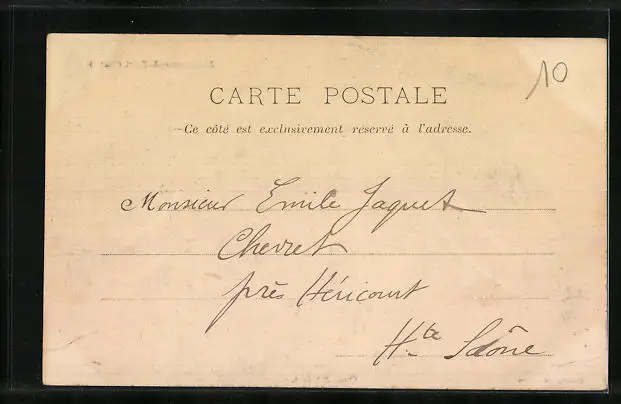 10
CARTE POSTALE
Ce côté est exclusivement réservé à l'adresse.
Monsieur Emile Jaquet
Chevret
près Héricourt
Hte Saône